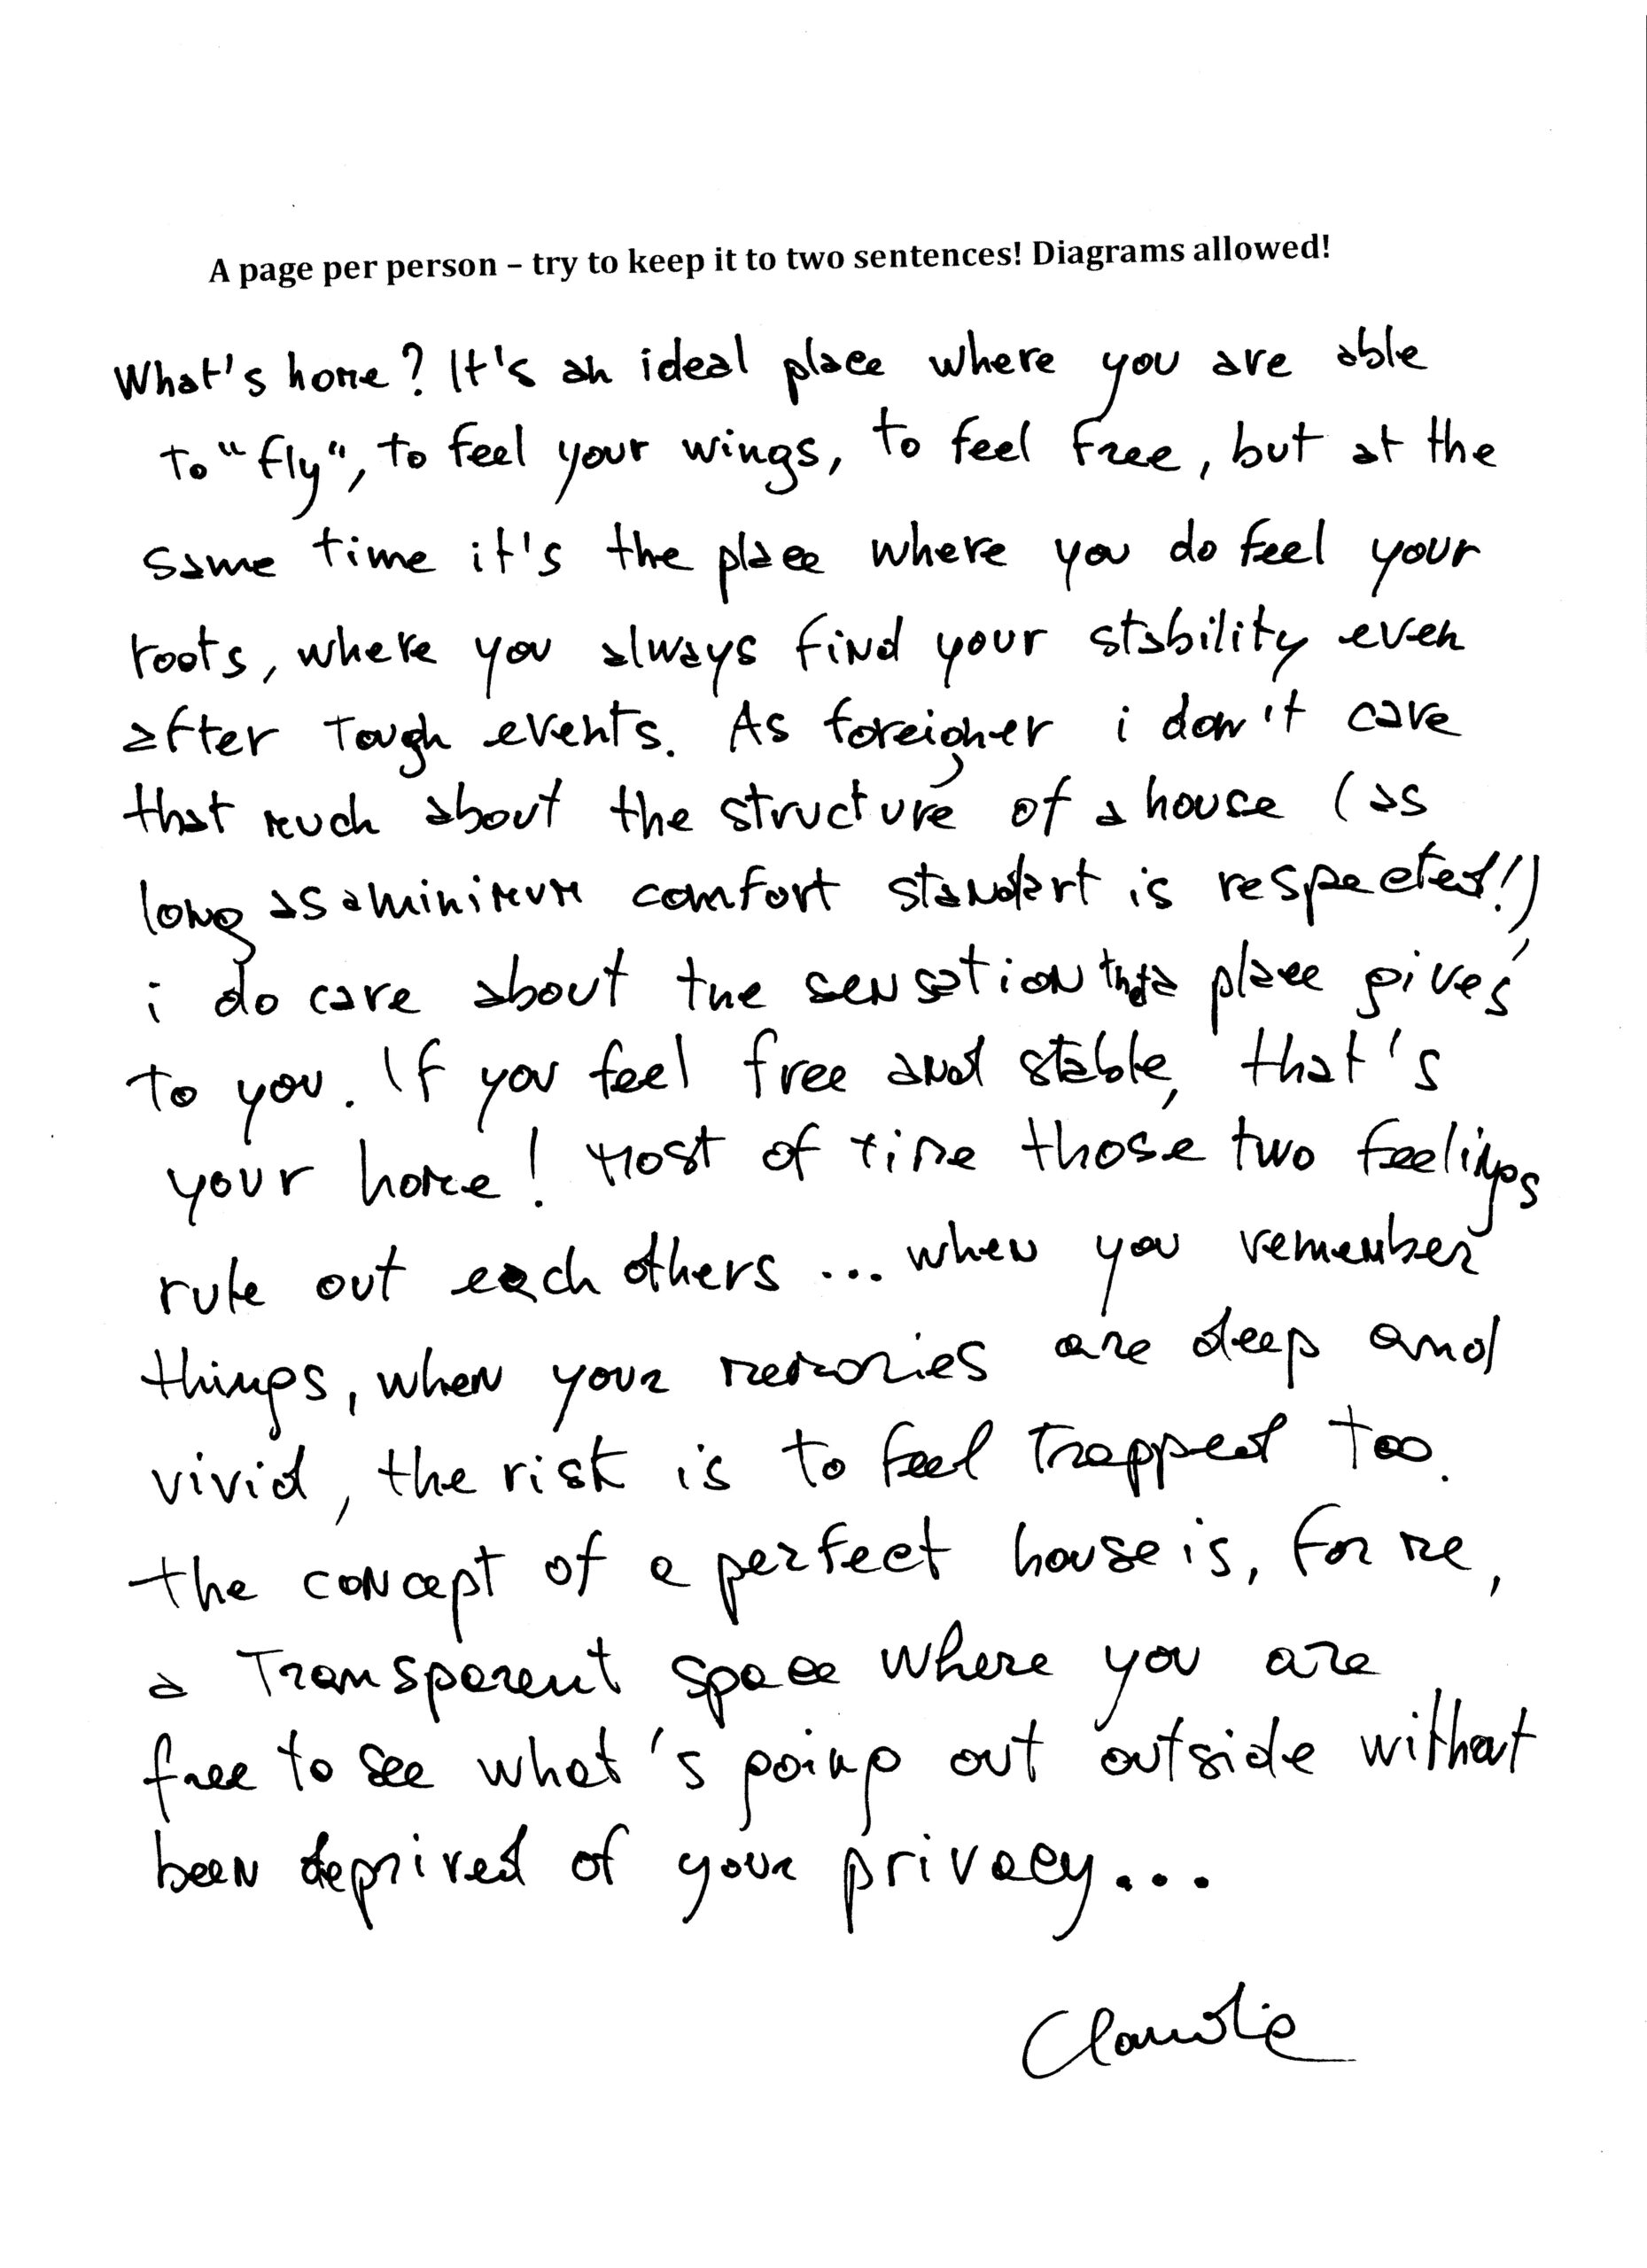 A page per person – try to keep it to two sentences! Diagrams allowed!
What's home? It's an ideal place where you are able
to "fly", to feel your wings, to feel free, but at the
same time it's the place where you do feel your
roots, where you always find your stability even
after tough events. As foreigner i don't care
that much about the structure of a house (as
long as a minimum comfort standart is respected!),
i do care about the sensation that a place gives
to you. If you feel free and stable, that's
your home! Most of time those two feelings
rule out each others ... when you remember
things, when your memories are deep and
vivid, the risk is to feel trapped too.
the concept of a perfect house is, for me,
a transparent space where you are
free to see what's going out outside without
been deprived of your privacy...
Claudia